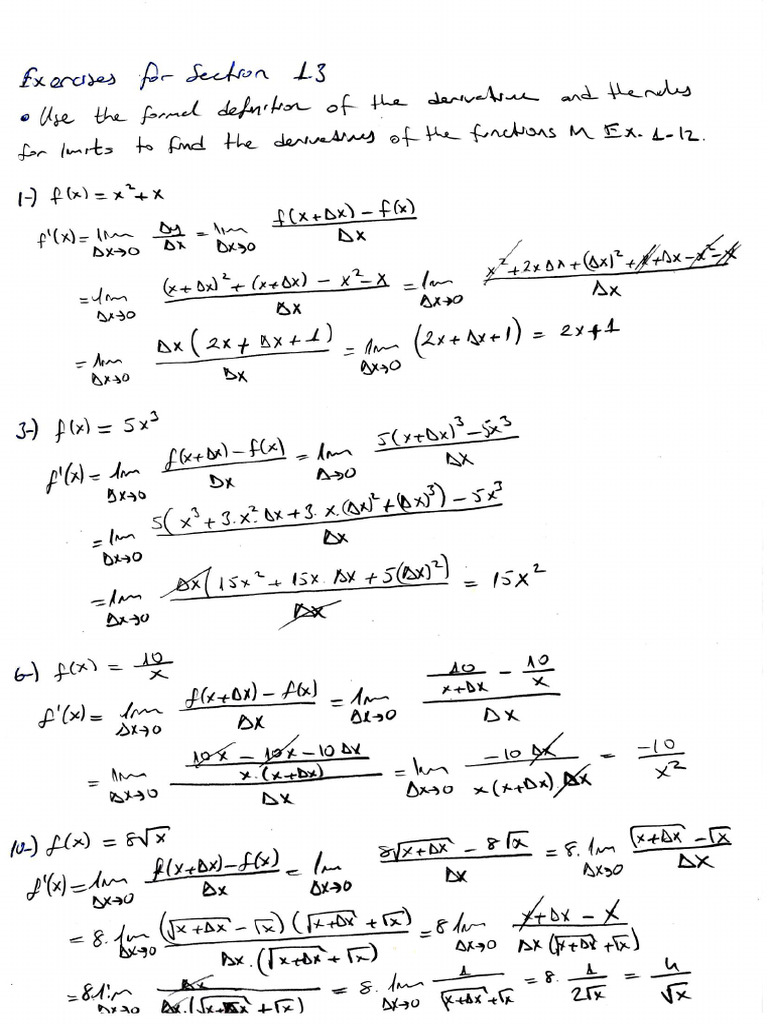 Exercises for Section 1.3
• Use the formal definition of the derivative and the rules
for limits to find the derivatives of the functions in Ex. 1-12.
1-) f(x) = x² + x
f'(x) = lim Δx→0 Δy/Δx = lim Δx→0 (f(x+Δx) − f(x))/Δx
= lim Δx→0 ((x+Δx)² + (x+Δx) − x² − x)/Δx = lim Δx→0 (x² + 2xΔx + (Δx)² + x + Δx − x² − x)/Δx
= lim Δx→0 Δx(2x + Δx + 1)/Δx = lim Δx→0 (2x + Δx + 1) = 2x+1
3-) f(x) = 5x³
f'(x) = lim Δx→0 (f(x+Δx) − f(x))/Δx = lim Δ→0 (5(x+Δx)³ − 5x³)/Δx
= lim Δx→0 (5(x³ + 3.x².Δx + 3.x.(Δx)² + (Δx)³) − 5x³)/Δx
= lim Δx→0 Δx(15x² + 15x.Δx + 5(Δx)²)/Δx = 15x²
6-) f(x) = 10/x
f'(x) = lim Δx→0 (f(x+Δx) − f(x))/Δx = lim Δx→0 (10/(x+Δx) − 10/x)/Δx
= lim Δx→0 ((10x − 10x − 10Δx)/(x.(x+Δx)))/Δx = lim Δx→0 (−10Δx)/(x(x+Δx).Δx) = −10/x²
10-) f(x) = 8√x
f'(x) = lim Δx→0 (f(x+Δx) − f(x))/Δx = lim Δx→0 (8√(x+Δx) − 8√x)/Δx = 8.lim Δx→0 (√(x+Δx) − √x)/Δx
= 8.lim Δx→0 ((√(x+Δx) − √x)(√(x+Δx) + √x))/(Δx.(√(x+Δx) + √x)) = 8 lim Δx→0 (x + Δx − x)/(Δx(√(x+Δx) + √x))
= 8 lim Δx→0 Δx/(Δx.(√(x+Δx) + √x)) = 8. lim Δx→0 1/(√(x+Δx) + √x) = 8. 1/(2√x) = 4/√x